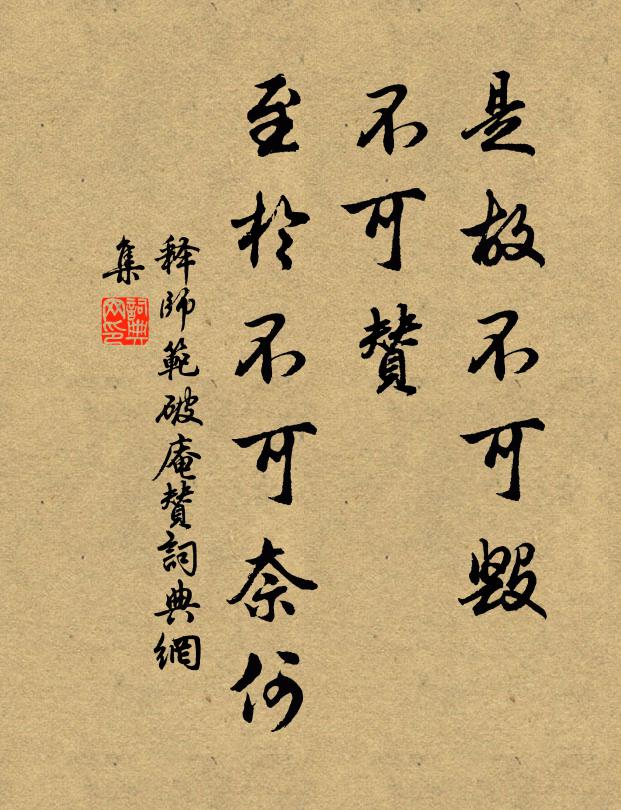 是故不可毀
不可贊
至於不可奈何
释師範破庵贊詞典網
集
詞典
网印